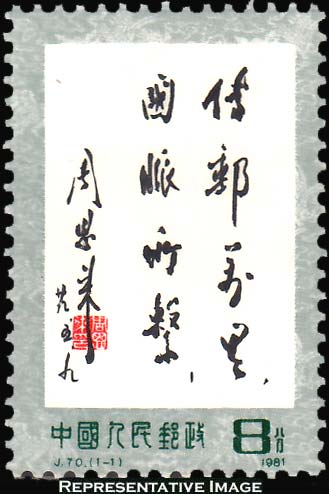 傳郵萬里，
國脈所繫，
周恩来
廿九五九
中國人民郵政 8分
J.70.(1-1) 1981
REPRESENTATIVE IMAGE